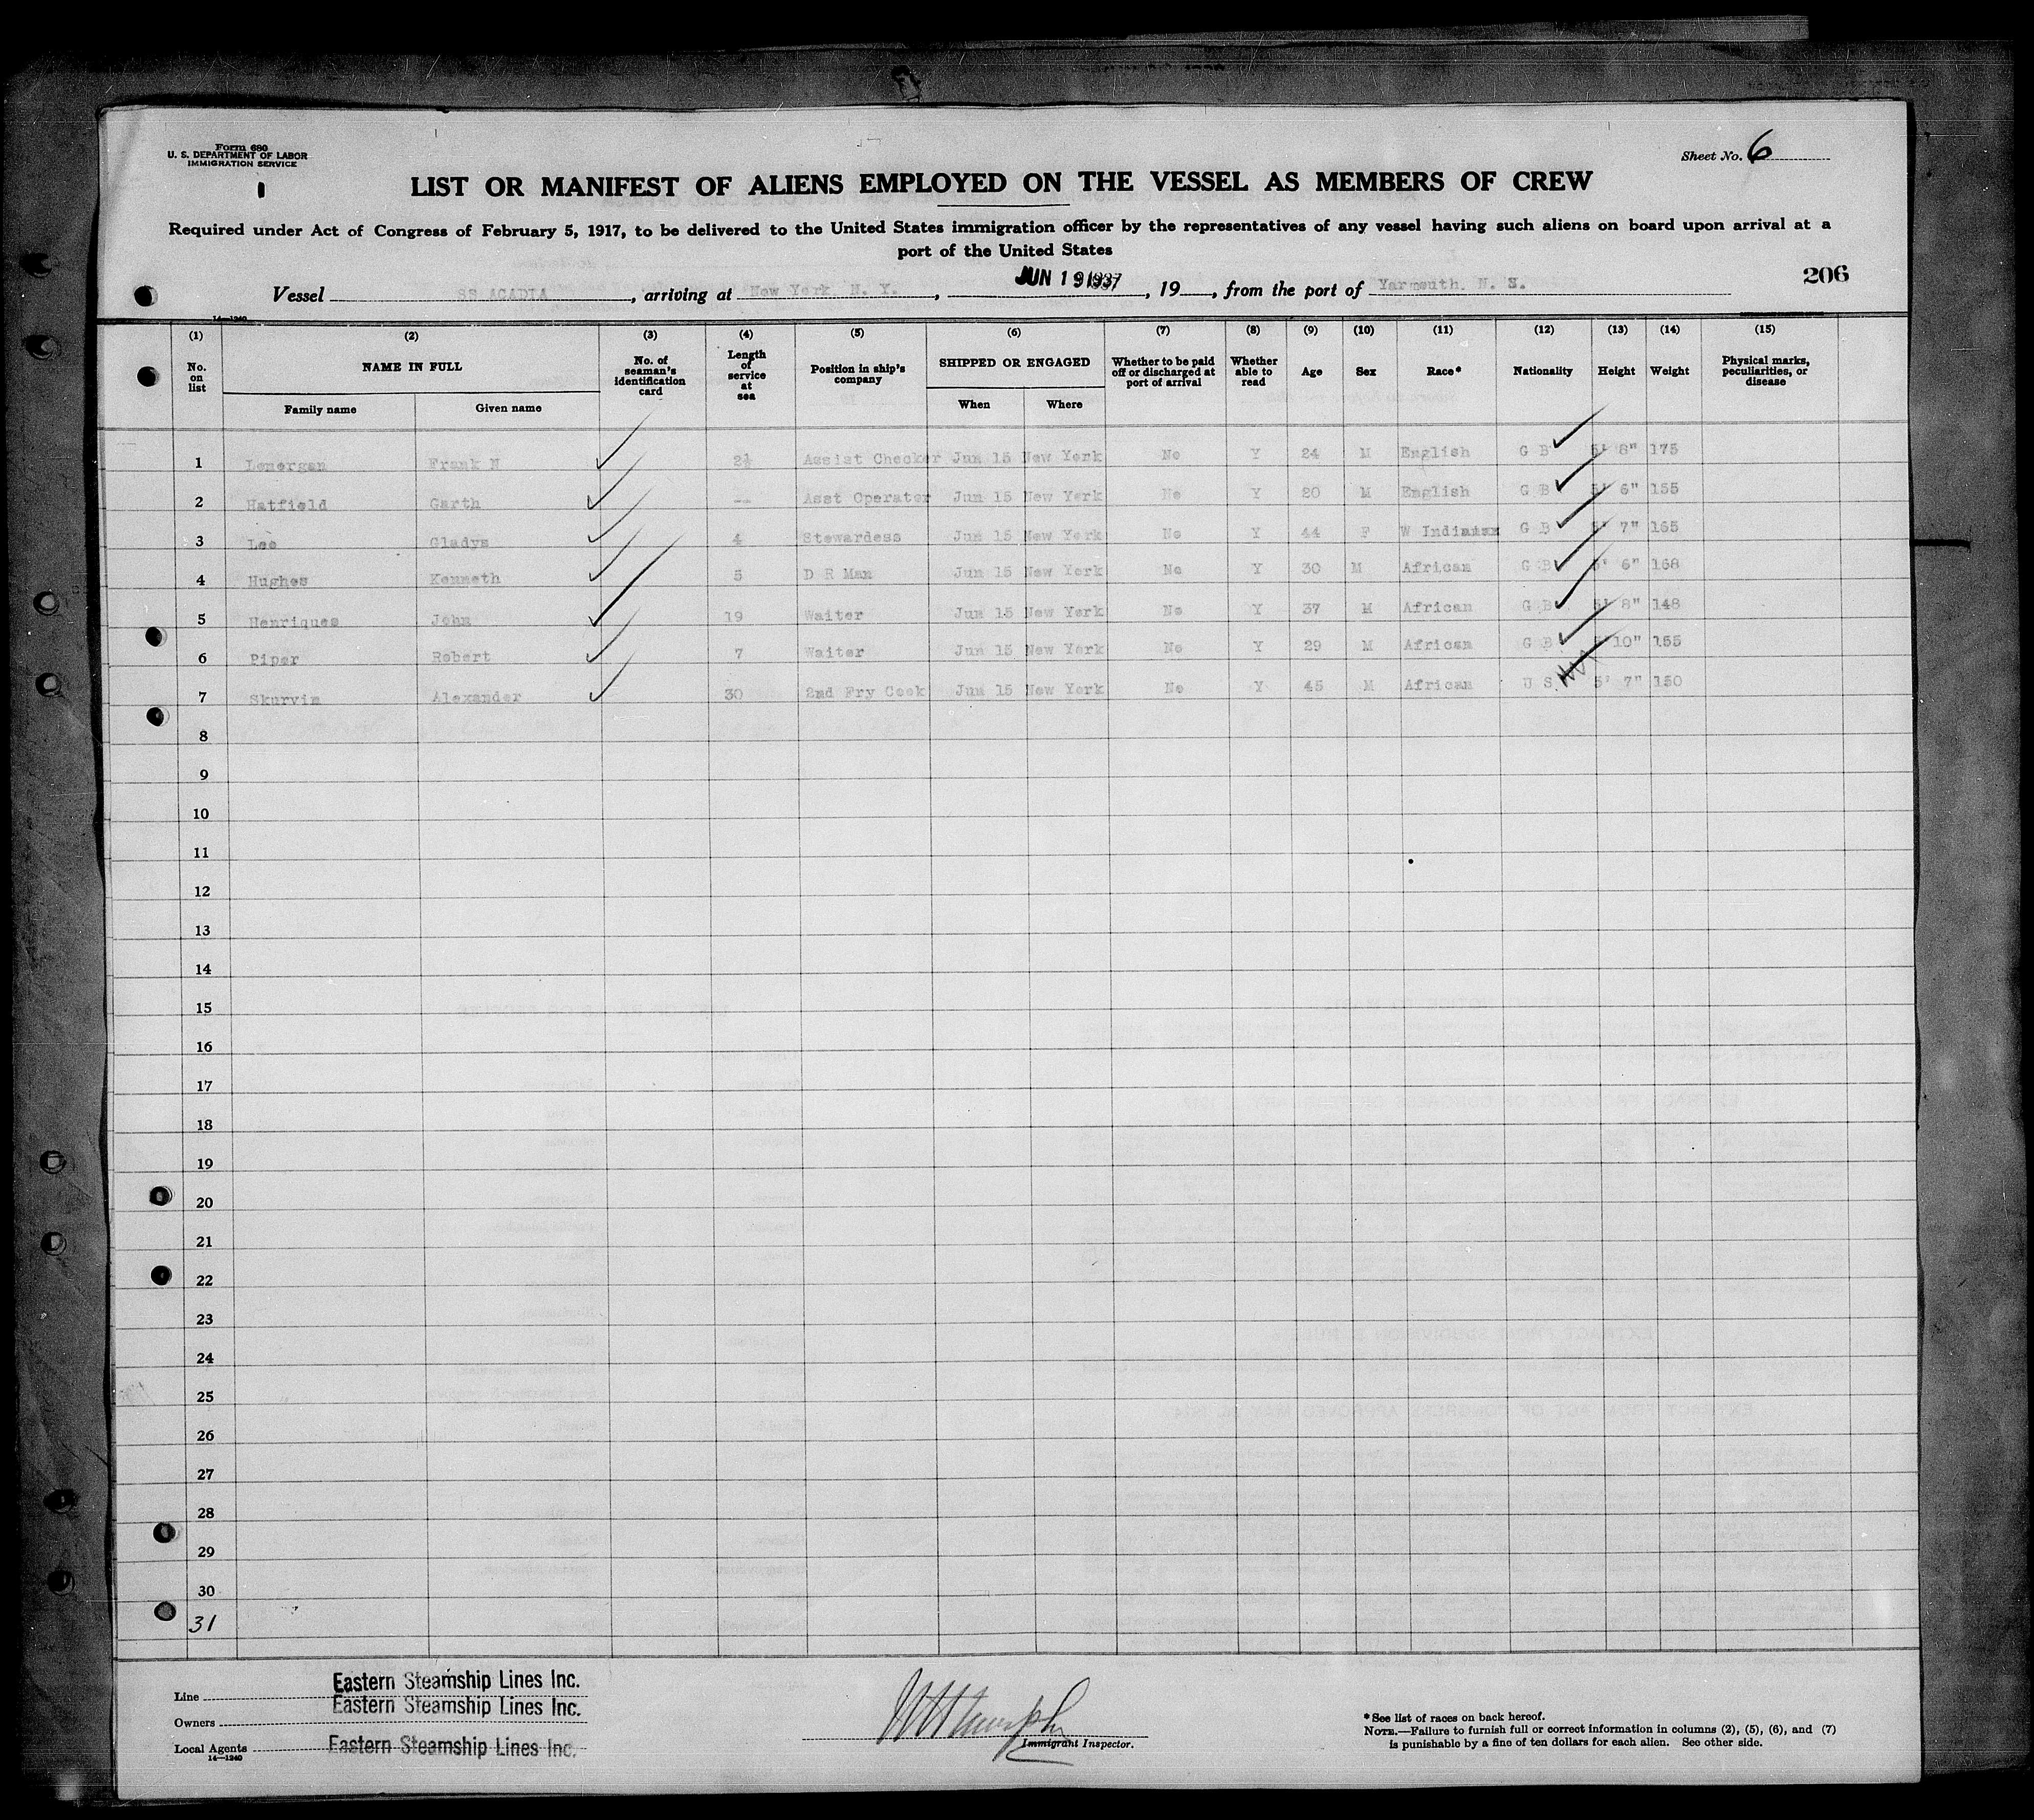 Form 680
U. S. DEPARTMENT OF LABOR
IMMIGRATION SERVICE
Sheet No. 6
LIST OR MANIFEST OF ALIENS EMPLOYED ON THE VESSEL AS MEMBERS OF CREW
Required under Act of Congress of February 5, 1917, to be delivered to the United States immigration officer by the representatives of any vessel having such aliens on board upon arrival at a
port of the United States
206
Vessel SS ACADIA, arriving at New York N. Y., JUN 19 1937, 19, from the port of Yarmouth. N. S.
14—1240
(1) (2) (3) (4) (5) (6) (7) (8) (9) (10) (11) (12) (13) (14) (15)
No. on list NAME IN FULL No. of seaman's identification card Length of service at sea Position in ship's company SHIPPED OR ENGAGED Whether to be paid off or discharged at port of arrival Whether able to read Age Sex Race* Nationality Height Weight Physical marks, peculiarities, or disease
Family name Given name When Where
1 Lonergan Frank N 2½ Assist Checker Jun 15 New York No Y 24 M English G B 5' 8" 175
2 Hatfield Garth -- Asst Operator Jun 15 New York No Y 20 M English G B 5' 6" 155
3 Lee Gladys 4 Stewardess Jun 15 New York No Y 44 F W Indian G B 5' 7" 165
4 Hughes Kenneth 5 D R Man Jun 15 New York No Y 30 M African G B 5' 6" 168
5 Henriques John 19 Waiter Jun 15 New York No Y 37 M African G B 5' 8" 148
6 Piper Robert 7 Waiter Jun 15 New York No Y 29 M African G B 5' 10" 155
7 Skurvin Alexander 30 2nd Fry Cook Jun 15 New York No Y 45 M African U S 5' 7" 150
8
9
10
11
12
13
14
15
16
17
18
19
20
21
22
23
24
25
26
27
28
29
30
31
Line Eastern Steamship Lines Inc.
Owners Eastern Steamship Lines Inc.
Local Agents Eastern Steamship Lines Inc.
14—1240
Immigrant Inspector.
*See list of races on back hereof.
NOTE.—Failure to furnish full or correct information in columns (2), (5), (6), and (7)
is punishable by a fine of ten dollars for each alien. See other side.